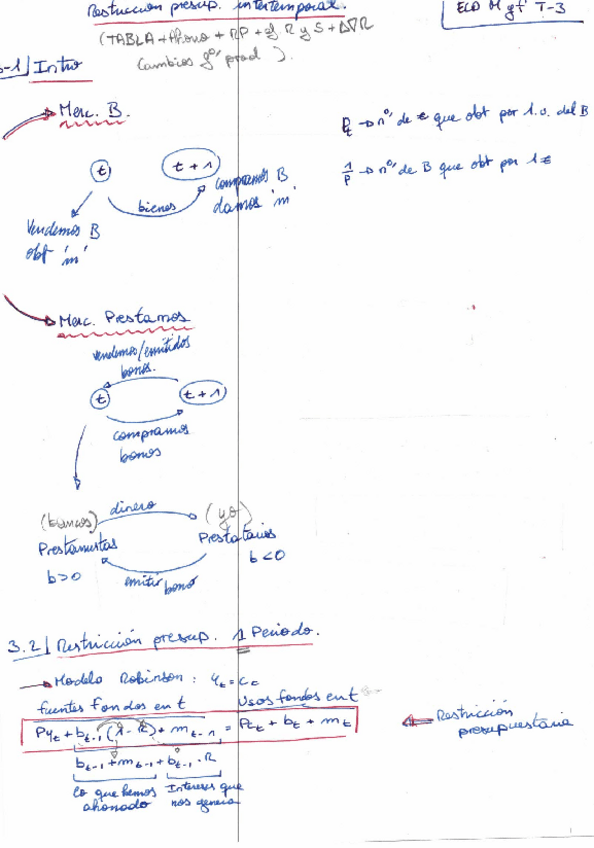 Restricción presup. intertemporal.
ECO M gf T-3
(TABLA + Ahorro + RP + ef R y S + ΔPR
cambios fº prod ).
-1/ Intro
Merc. B.
P → nº de € que obt por 1 u. del B
t
t+1
1/P → nº de B que obt por 1 €
compramos B
bienes
damos 'm'
Vendemos B
obt 'm'
Merc. Prestamos
vendemos/emitidos
bonos.
t
t+1
compramos
bonos
dinero
(bancos)
(yo)
Prestamistas
Prestatarios
b>0
b<0
emitir bono
3.2/ Restricción presup. 1 Periodo.
Modelo Robinson: yt = ct
fuentes fondos en t
Usos fondos en t
Pyt + bt-1 (1-R) + mt-1 = Pct + bt + mt
Restricción
presupuestaria
bt-1 + mt-1 + bt-1 · R
lo que hemos
ahorrado
Intereses que
nos genera